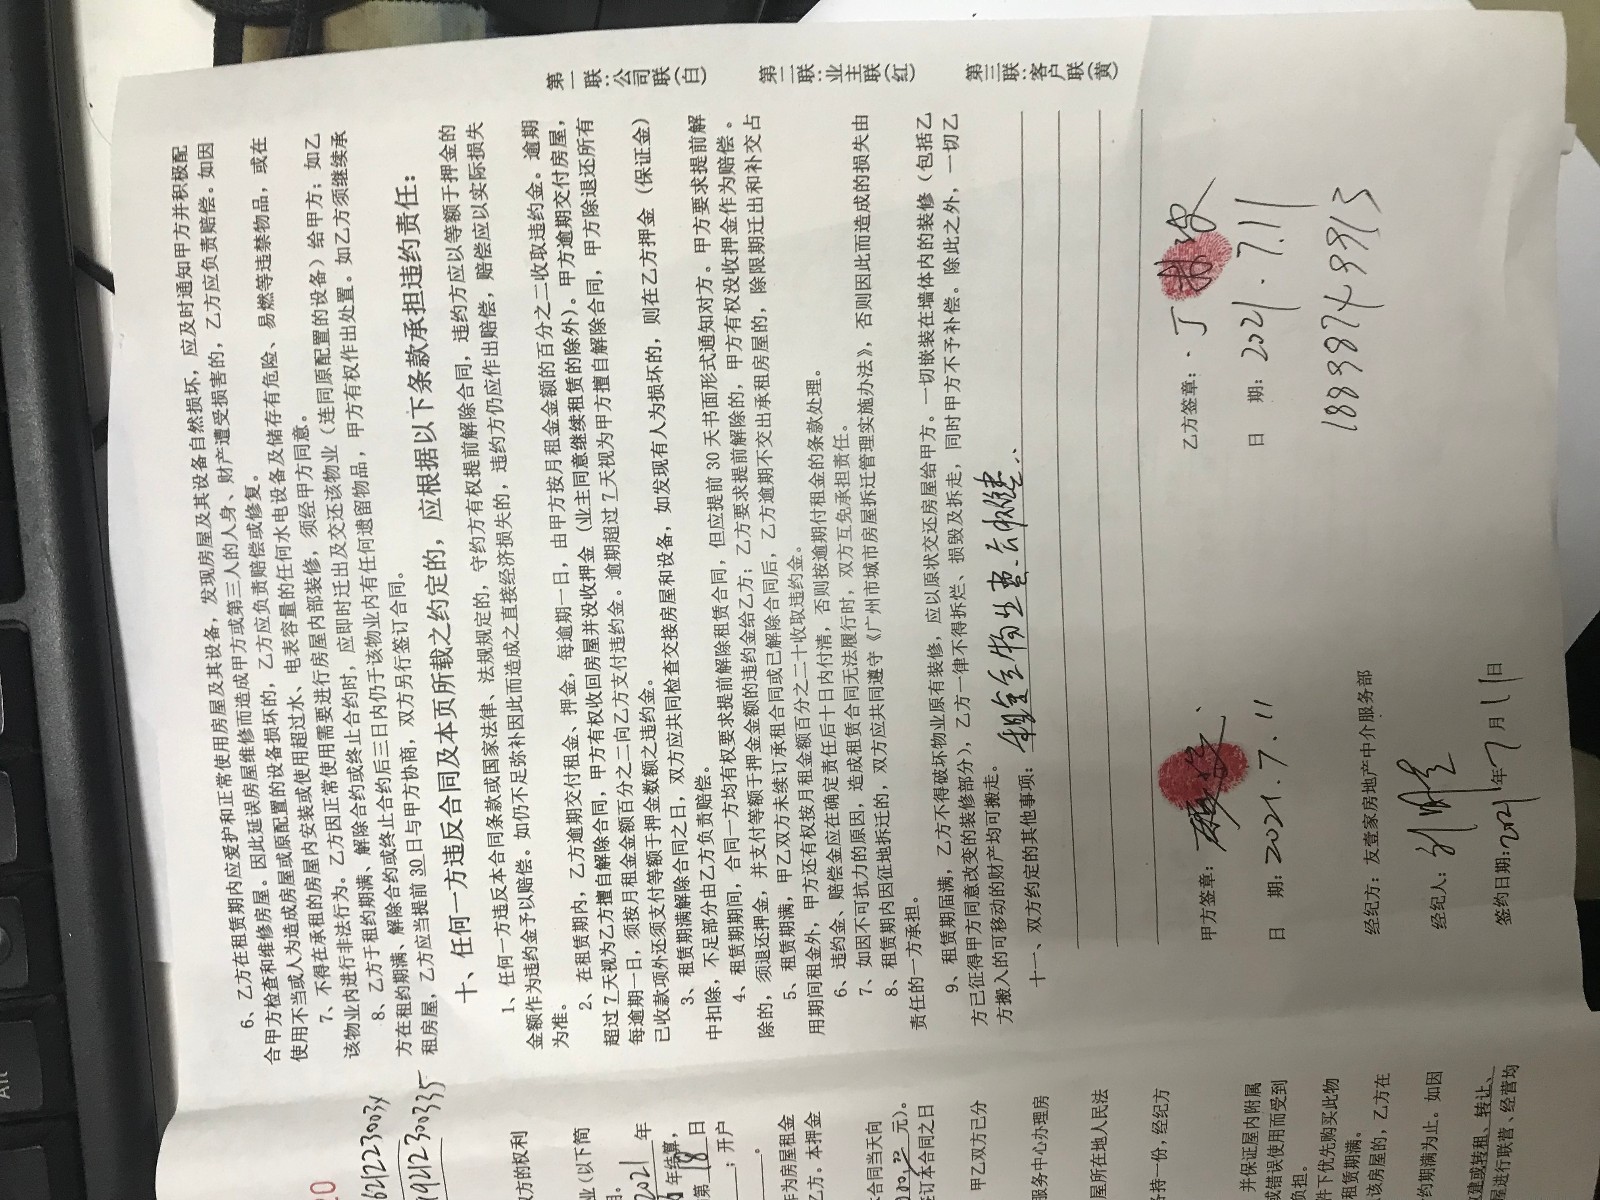 6、乙方在租赁期内应爱护和正常使用房屋及其设备，发现房屋及其设备自然损坏，应及时通知甲方并积极配
合甲方检查和维修房屋。因此延误房屋维修而造成甲方或第三人的人身、财产遭受损害的，乙方应负责赔偿。如因
使用不当或人为造成房屋或原配置的设备损坏的，乙方应负责赔偿或修复。
7、不得在承租的房屋内安装或使用超过水、电表容量的任何水电设备及储存有危险、易燃等违禁物品，或在
该物业内进行非法行为。乙方因正常使用需要进行房屋内部装修，须经甲方同意。
8、乙方于租约期满、解除合约或终止合约时，应即时迁出及交还该物业（连同原配置的设备）给甲方；如乙
方在租约期满、解除合约或终止合约后三日内仍于该物业内有任何遗留物品，甲方有权作出处置。如乙方须继续承
租房屋，乙方应当提前30日与甲方协商，双方另行签订合同。
十、任何一方违反合同及本页所载之约定的，应根据以下条款承担违约责任：
1、任何一方违反本合同条款或国家法律、法规规定的，守约方有权提前解除合同，违约方应以等额于押金的
金额作为违约金予以赔偿。如仍不足弥补因此而造成之直接经济损失的，违约方仍应作出赔偿，赔偿应以实际损失
为准。
2、在租赁期内，乙方逾期交付租金、押金，每逾期一日，由甲方按月租金金额的百分之二收取违约金。逾期
超过7天视为乙方擅自解除合同，甲方有权收回房屋并没收押金（业主同意继续租赁的除外）。甲方逾期交付房屋，
每逾期一日，须按月租金金额百分之二向乙方支付违约金。逾期超过7天视为甲方擅自解除合同，甲方除退还所有
已收款项外还须支付等额于押金数额之违约金。
3、租赁期满解除合同之日，双方应共同检查交接房屋和设备，如发现有人为损坏的，则在乙方押金（保证金）
中扣除，不足部分由乙方负责赔偿。
4、租赁期期间，合同一方均有权要求提前解除租赁合同，但应提前30天书面形式通知对方。甲方要求提前解
除的，须退还押金，并支付等额于押金金额的违约金给乙方；乙方要求提前解除的，甲方有权没收押金作为赔偿。
5、租赁期满，甲乙双方未续订承租合同或已解除合同后，乙方逾期不交出承租房屋的，除限期迁出和补交占
用期间租金外，甲方还有权按月租金额百分之二十收取违约金。
6、违约金、赔偿金应在确定责任后十日内付清，否则按逾期付租金的条款处理。
7、如因不可抗力的原因，造成租赁合同无法履行时，双方互免承担责任。
8、租赁期内因征地拆迁的，双方应共同遵守《广州市城市房屋拆迁管理实施办法》，否则因此而造成的损失由
责任的一方承担。
9、租赁期届满，乙方不得破坏物业原有装修，应以原状交还房屋给甲方。一切嵌装在墙体内的装修（包括乙
方已征得甲方同意改变的装修部分），乙方一律不得拆烂、损毁及拆走，同时甲方不予补偿。除此之外，一切乙
方搬入的可移动的财产均可搬走。
十一、双方约定的其他事项：租金全物业费
甲方签章：
日 期：2021.7.11
乙方签章：丁
日 期：2021.7.11
18898749913
经纪方：友壹家房地产中介服务部
经纪人：
签约日期：2021年7月11日
第一联：公司联（白）
第二联：业主联（红）
第三联：客户联（黄）
双方的权利
业（以下简
2021年
年结算，
第18日
；开户
作为房屋租金
乙方。本押金
合同当天向
元）。
签订本合同之日
甲乙双方已分
服务中心办理房
屋所在地人民法
各持一份，经纪方
并保证屋内附属
或错误使用而受到
负担。
件下优先购买此物
租赁期满。
该房屋的，乙方在
约期满为止。如因
建或转租、转让、
进行联营、经营均
Alt